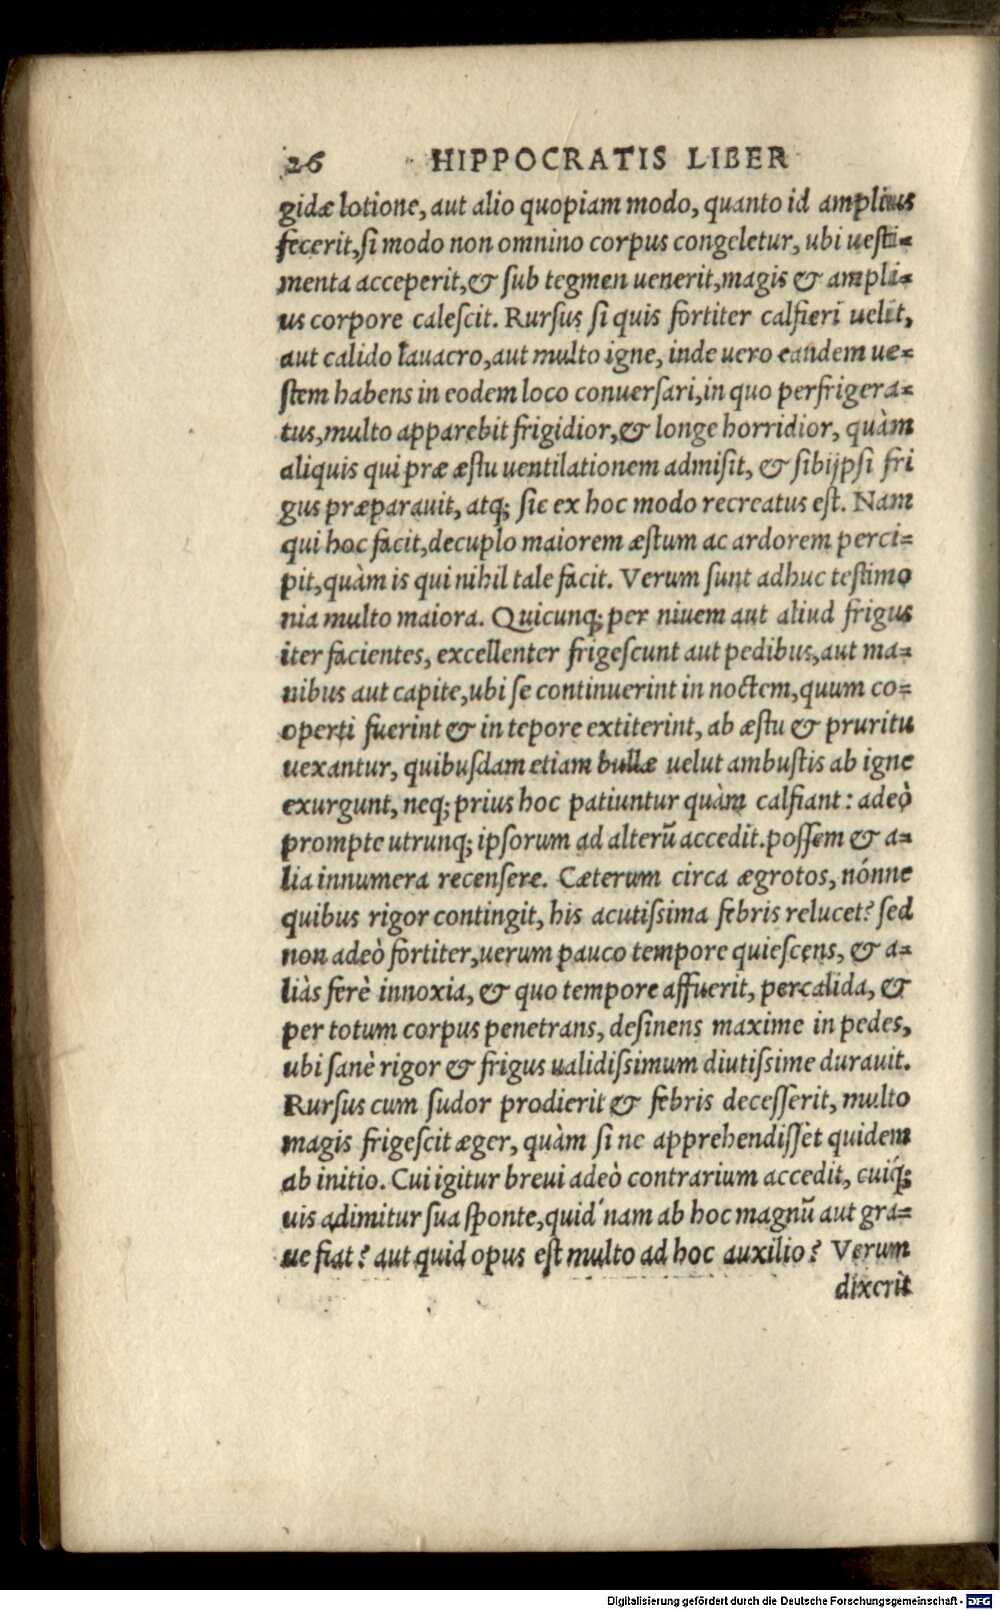 26 HIPPOCRATIS LIBER
gidæ lotione, aut alio quopiam modo, quanto id amplius
fecerit, si modo non omnino corpus congeletur, ubi uesti=
menta acceperit, & sub tegmen uenerit, magis & ampli=
us corpore calescit. Rursus si quis fortiter calfieri uelit,
aut calido lauacro, aut multo igne, inde uero eandem ue=
stem habens in eodem loco conuersari, in quo perfrigera=
tus, multo apparebit frigidior, & longe horridior, quàm
aliquis qui præ æstu uentilationem admisit, & sibijpsi fri
gus præparauit, atq; sic ex hoc modo recreatus est. Nam
qui hoc facit, decuplo maiorem æstum ac ardorem perci=
pit, quàm is qui nihil tale facit. Verum sunt adhuc testimo
nia multo maiora. Quicunq; per niuem aut aliud frigus
iter facientes, excellenter frigescunt aut pedibus, aut ma=
nibus aut capite, ubi se continuerint in noctem, quum co=
operti fuerint & in tepore extiterint, ab æstu & pruritu
uexantur, quibusdam etiam bullæ uelut ambustis ab igne
exurgunt, neq; prius hoc patiuntur quàm calfiant: adeò
prompte utrunq; ipsorum ad alterũ accedit. possem & a=
lia innumera recensere. Cæterum circa ægrotos, nónne
quibus rigor contingit, his acutissima febris relucet? sed
non adeò fortiter, uerum pauco tempore quiescens, & a=
liàs ferè innoxia, & quo tempore affuerit, percalida, &
per totum corpus penetrans, desinens maxime in pedes,
ubi sanè rigor & frigus ualidissimum diutissime durauit.
Rursus cum sudor prodierit & febris decesserit, multo
magis frigescit æger, quàm si ne apprehendisset quidem
ab initio. Cui igitur breui adeò contrarium accedit, cuiq;
uis adimitur sua sponte, quid nam ab hoc magnũ aut gra=
ue fiat? aut quid opus est multo ad hoc auxilio? Verum
dixerit
Digitalisierung gefördert durch die Deutsche Forschungsgemeinschaft - DFG